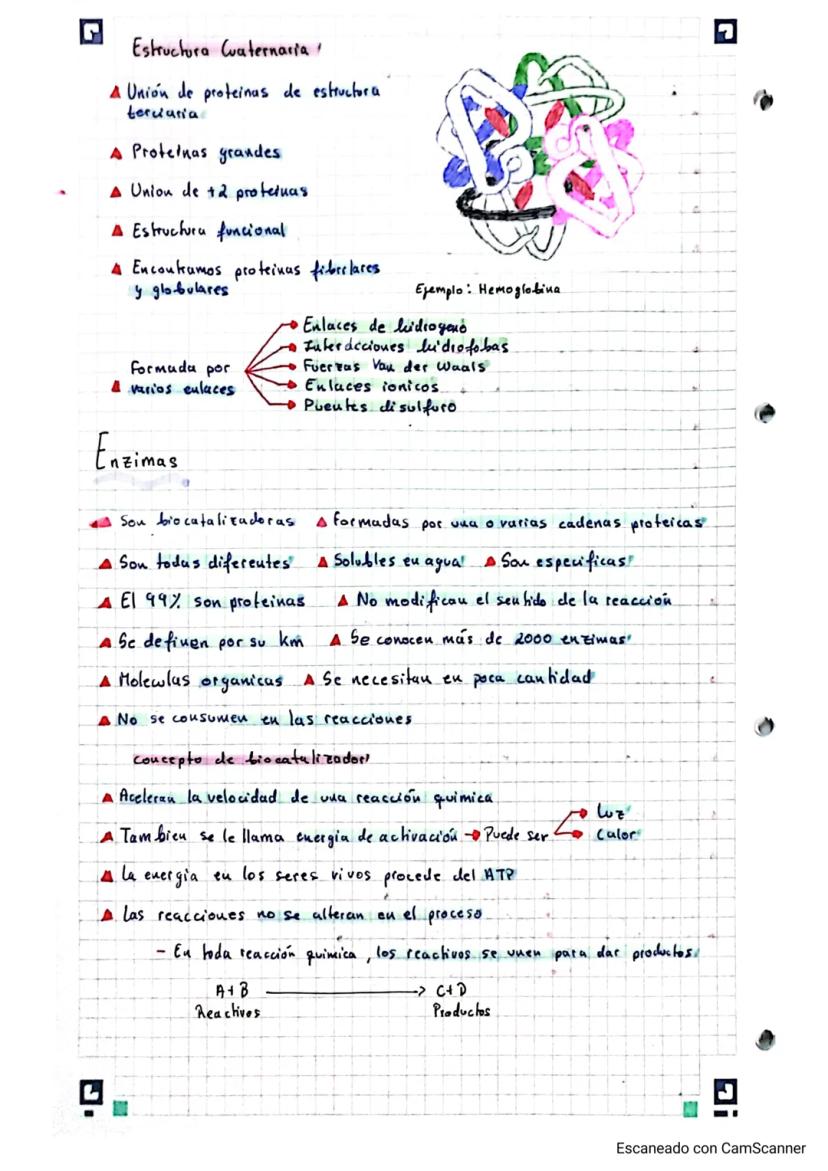 Estructura Cuaternaria
Unión de proteinas de estructura
terciaria
Proteinas grandes
Union de +2 proteinas
Estructura funcional
Encontramos proteinas fibrilares
y globulares
Ejemplo: Hemoglobina
Formada por
varios enlaces
Enlaces de hidrogeno
Interacciones hidrofobas
Fuerzas Van der Waals
Enlaces ionicos
Puentes disulfuro
Enzimas
Son biocatalizadoras Formadas por una o varias cadenas proteicas
Son todas diferentes Solubles en agua Son especificas
El 99% son proteinas No modifican el sentido de la reacción
Se definen por su km Se conocen más de 2000 enzimas
Moleculas organicas Se necesitan en poca cantidad
No se consumen en las reacciones
Concepto de biocatalizador
Aceleran la velocidad de una reacción quimica
Tambien se le llama energia de activación → Puede ser
Luz
Calor
La energia en los seres vivos procede del ATP
Las reacciones no se alteran en el proceso
- En toda reacción quimica, los reactivos se unen para dar productos.
A+B → C+D
Reactivos Productos
Escaneado con CamScanner